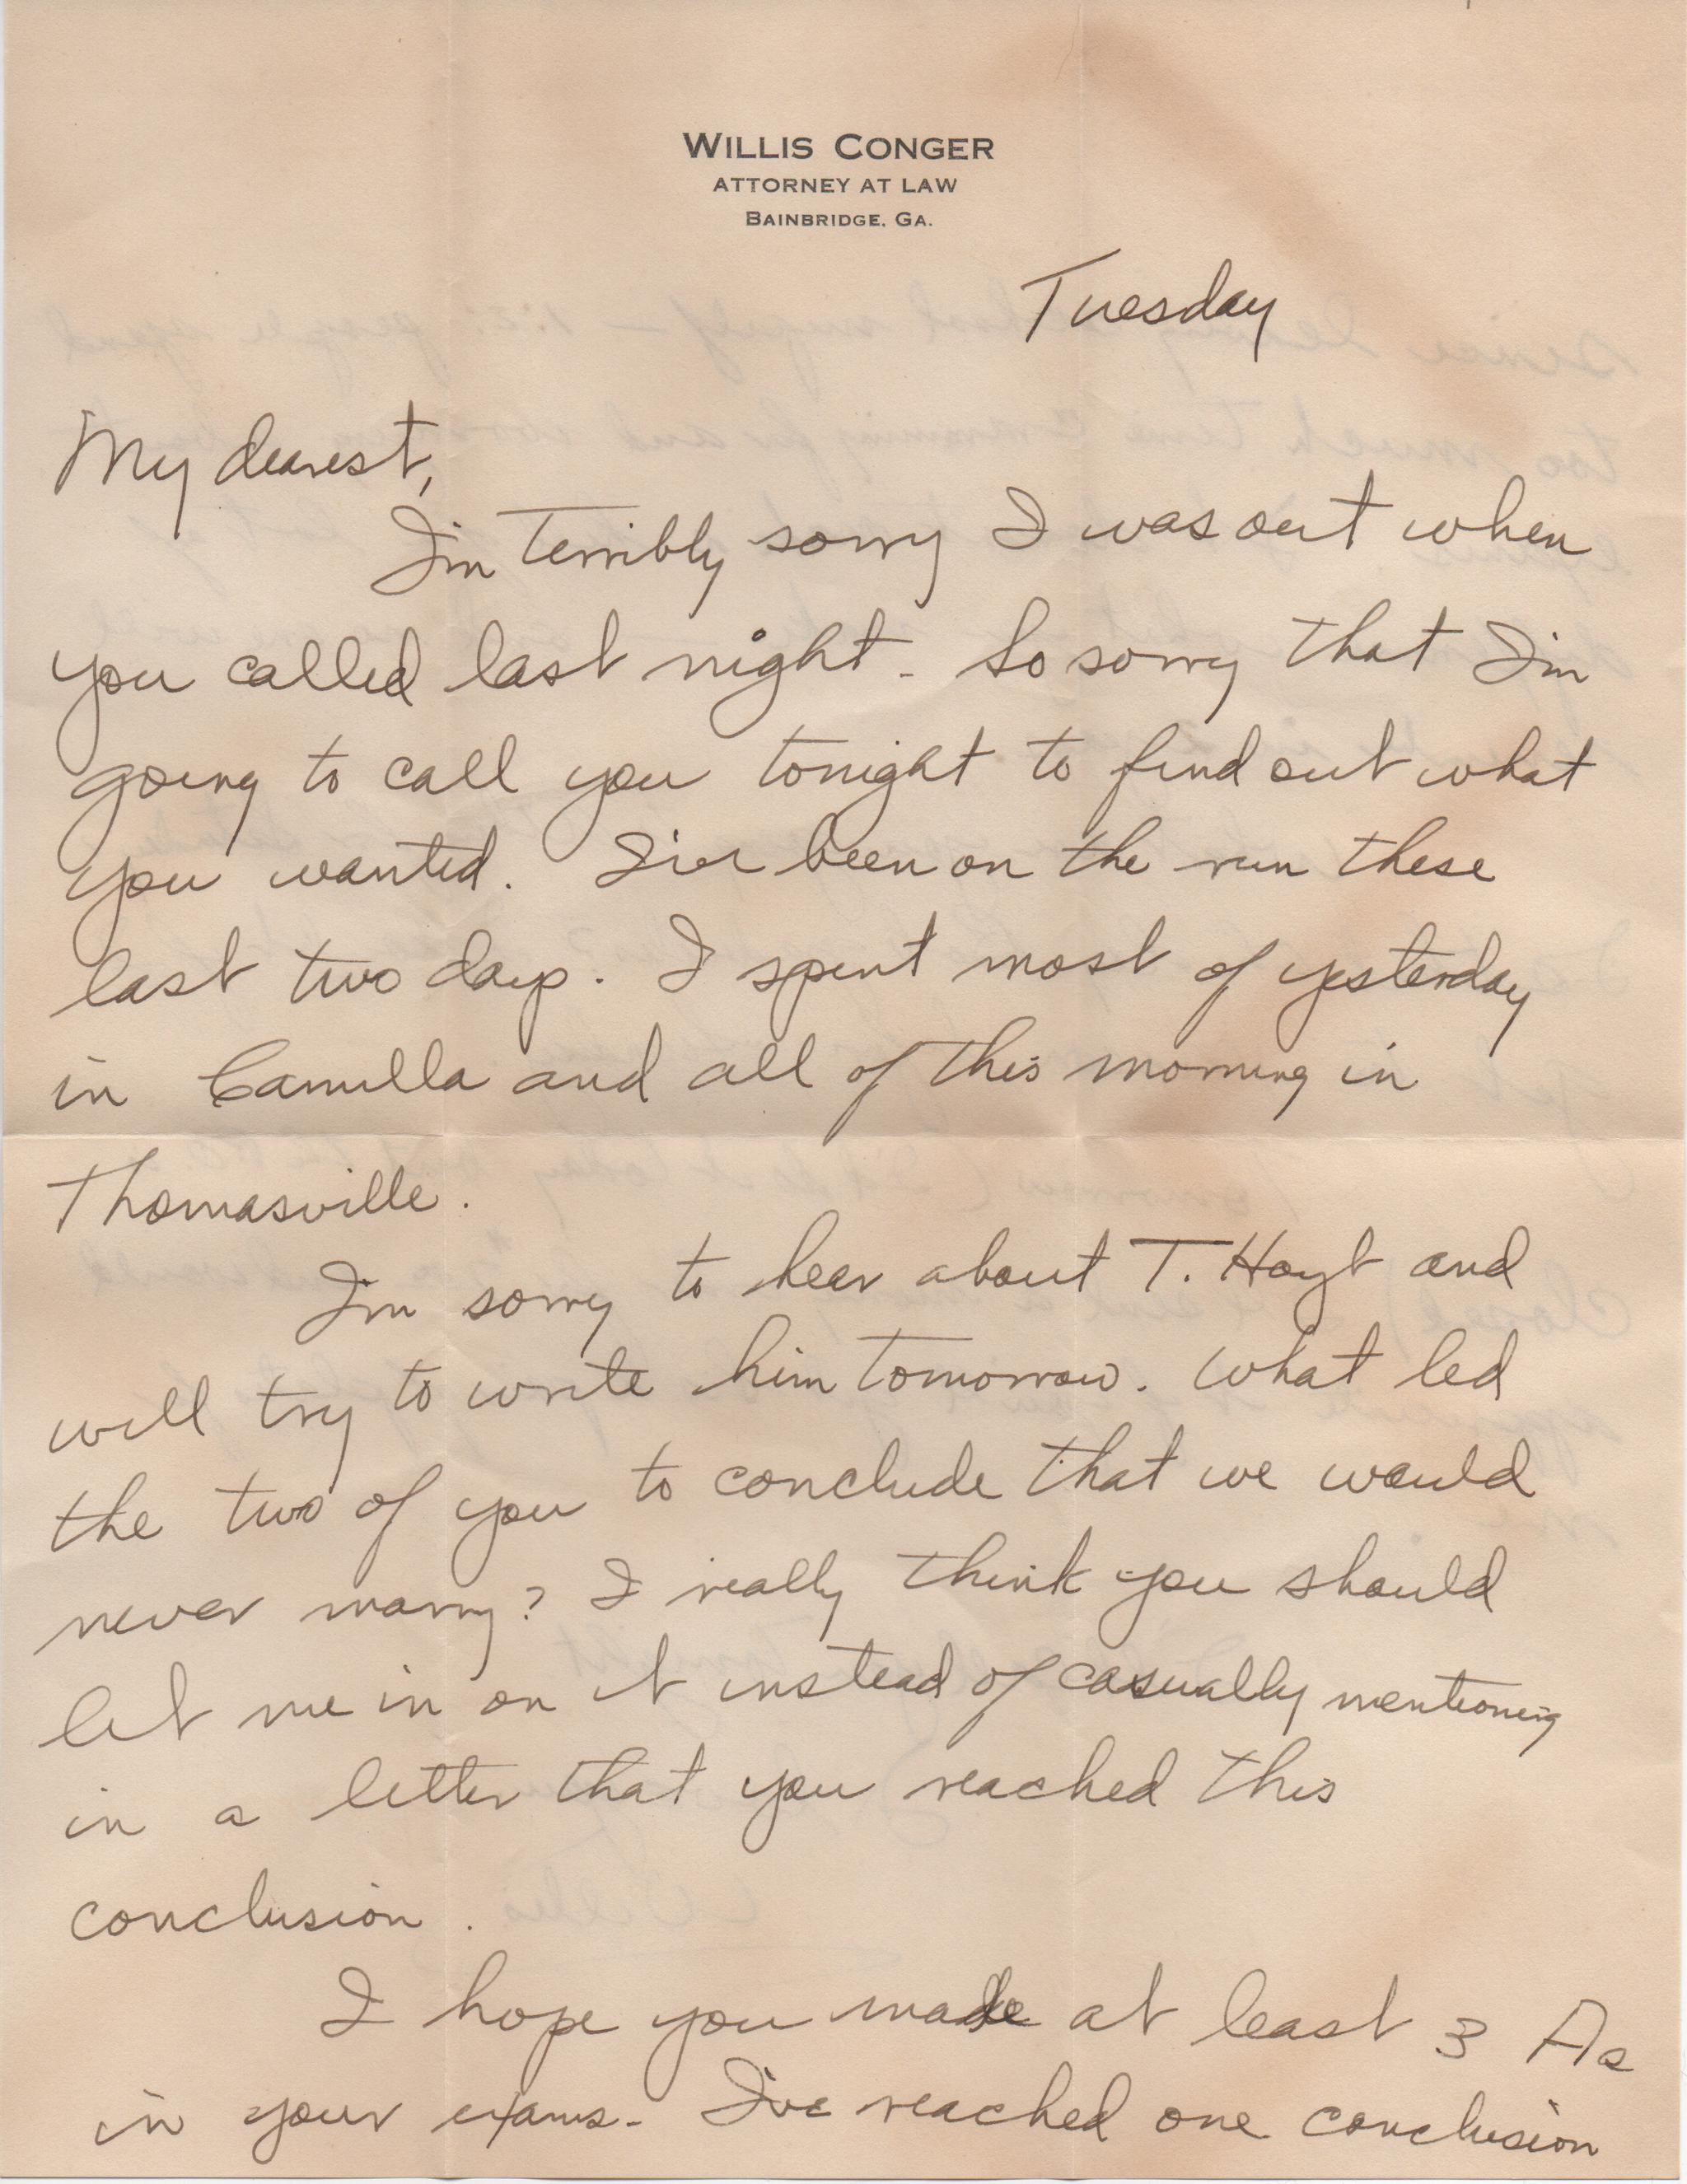 WILLIS CONGER
ATTORNEY AT LAW
BAINBRIDGE, GA.
Tuesday
My dearest,
I'm terribly sorry I was out when
you called last night. So sorry that I'm
going to call you tonight to find out what
you wanted. I've been on the run these
last two days. I spent most of yesterday
in Camilla and all of this morning in
Thomasville.
I'm sorry to hear about T. Hoyt and
will try to write him tomorrow. What led
the two of you to conclude that we would
never marry? I really think you should
let me in on it instead of casually mentioning
in a letter that you reached this
conclusion.
I hope you made at least 3 As
in your exams. I've reached one conclusion